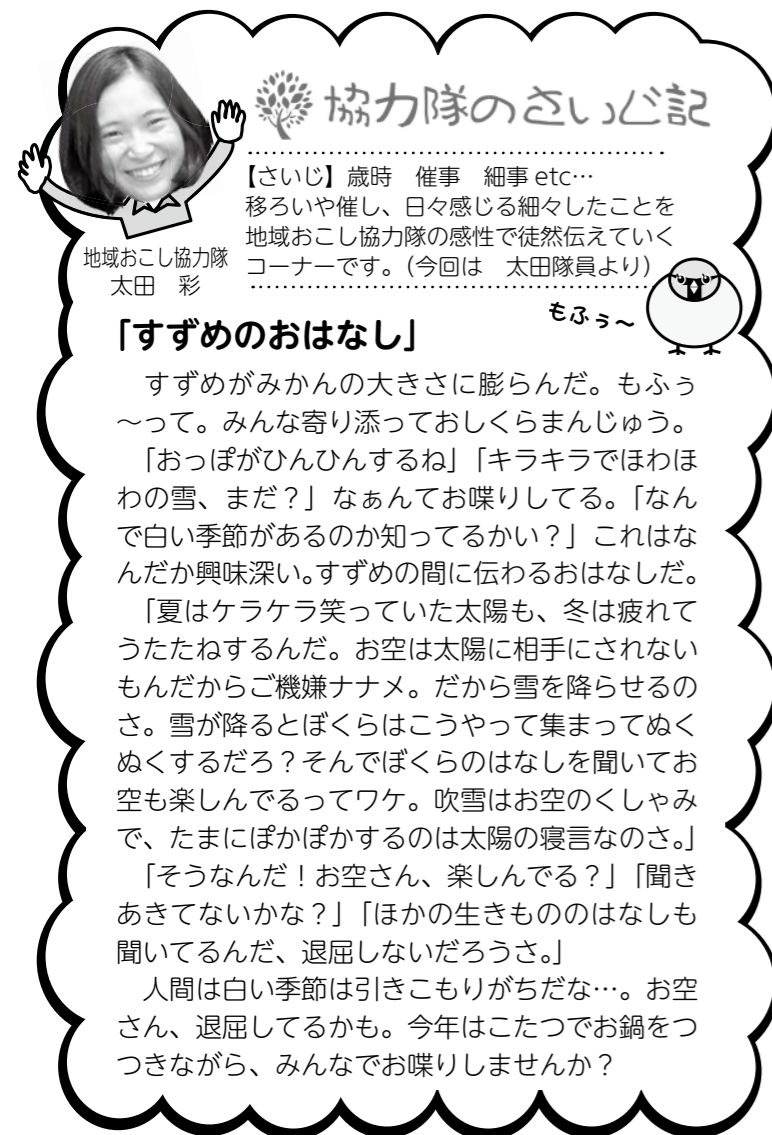 協力隊のさいじ記
【さいじ】歳時　催事　細事 etc…
移ろいや催し、日々感じる細々したことを
地域おこし協力隊の感性で徒然伝えていく
コーナーです。（今回は　太田隊員より）
地域おこし協力隊
太田　彩
もふぅ～
「すずめのおはなし」
　すずめがみかんの大きさに膨らんだ。もふぅ
～って。みんな寄り添っておしくらまんじゅう。
　「おっぽがひんひんするね」「キラキラでほわほ
わの雪、まだ？」なぁんてお喋りしてる。「なん
で白い季節があるのか知ってるかい？」これはな
んだか興味深い。すずめの間に伝わるおはなしだ。
　「夏はケラケラ笑っていた太陽も、冬は疲れて
うたたねするんだ。お空は太陽に相手にされない
もんだからご機嫌ナナメ。だから雪を降らせるの
さ。雪が降るとぼくらはこうやって集まってぬく
ぬくするだろ？そんでぼくらのはなしを聞いてお
空も楽しんでるってワケ。吹雪はお空のくしゃみ
で、たまにぽかぽかするのは太陽の寝言なのさ。」
　「そうなんだ！お空さん、楽しんでる？」「聞き
あきてないかな？」「ほかの生きもののはなしも
聞いてるんだ、退屈しないだろうさ。」
　人間は白い季節は引きこもりがちだな…。お空
さん、退屈してるかも。今年はこたつでお鍋をつ
つきながら、みんなでお喋りしませんか？